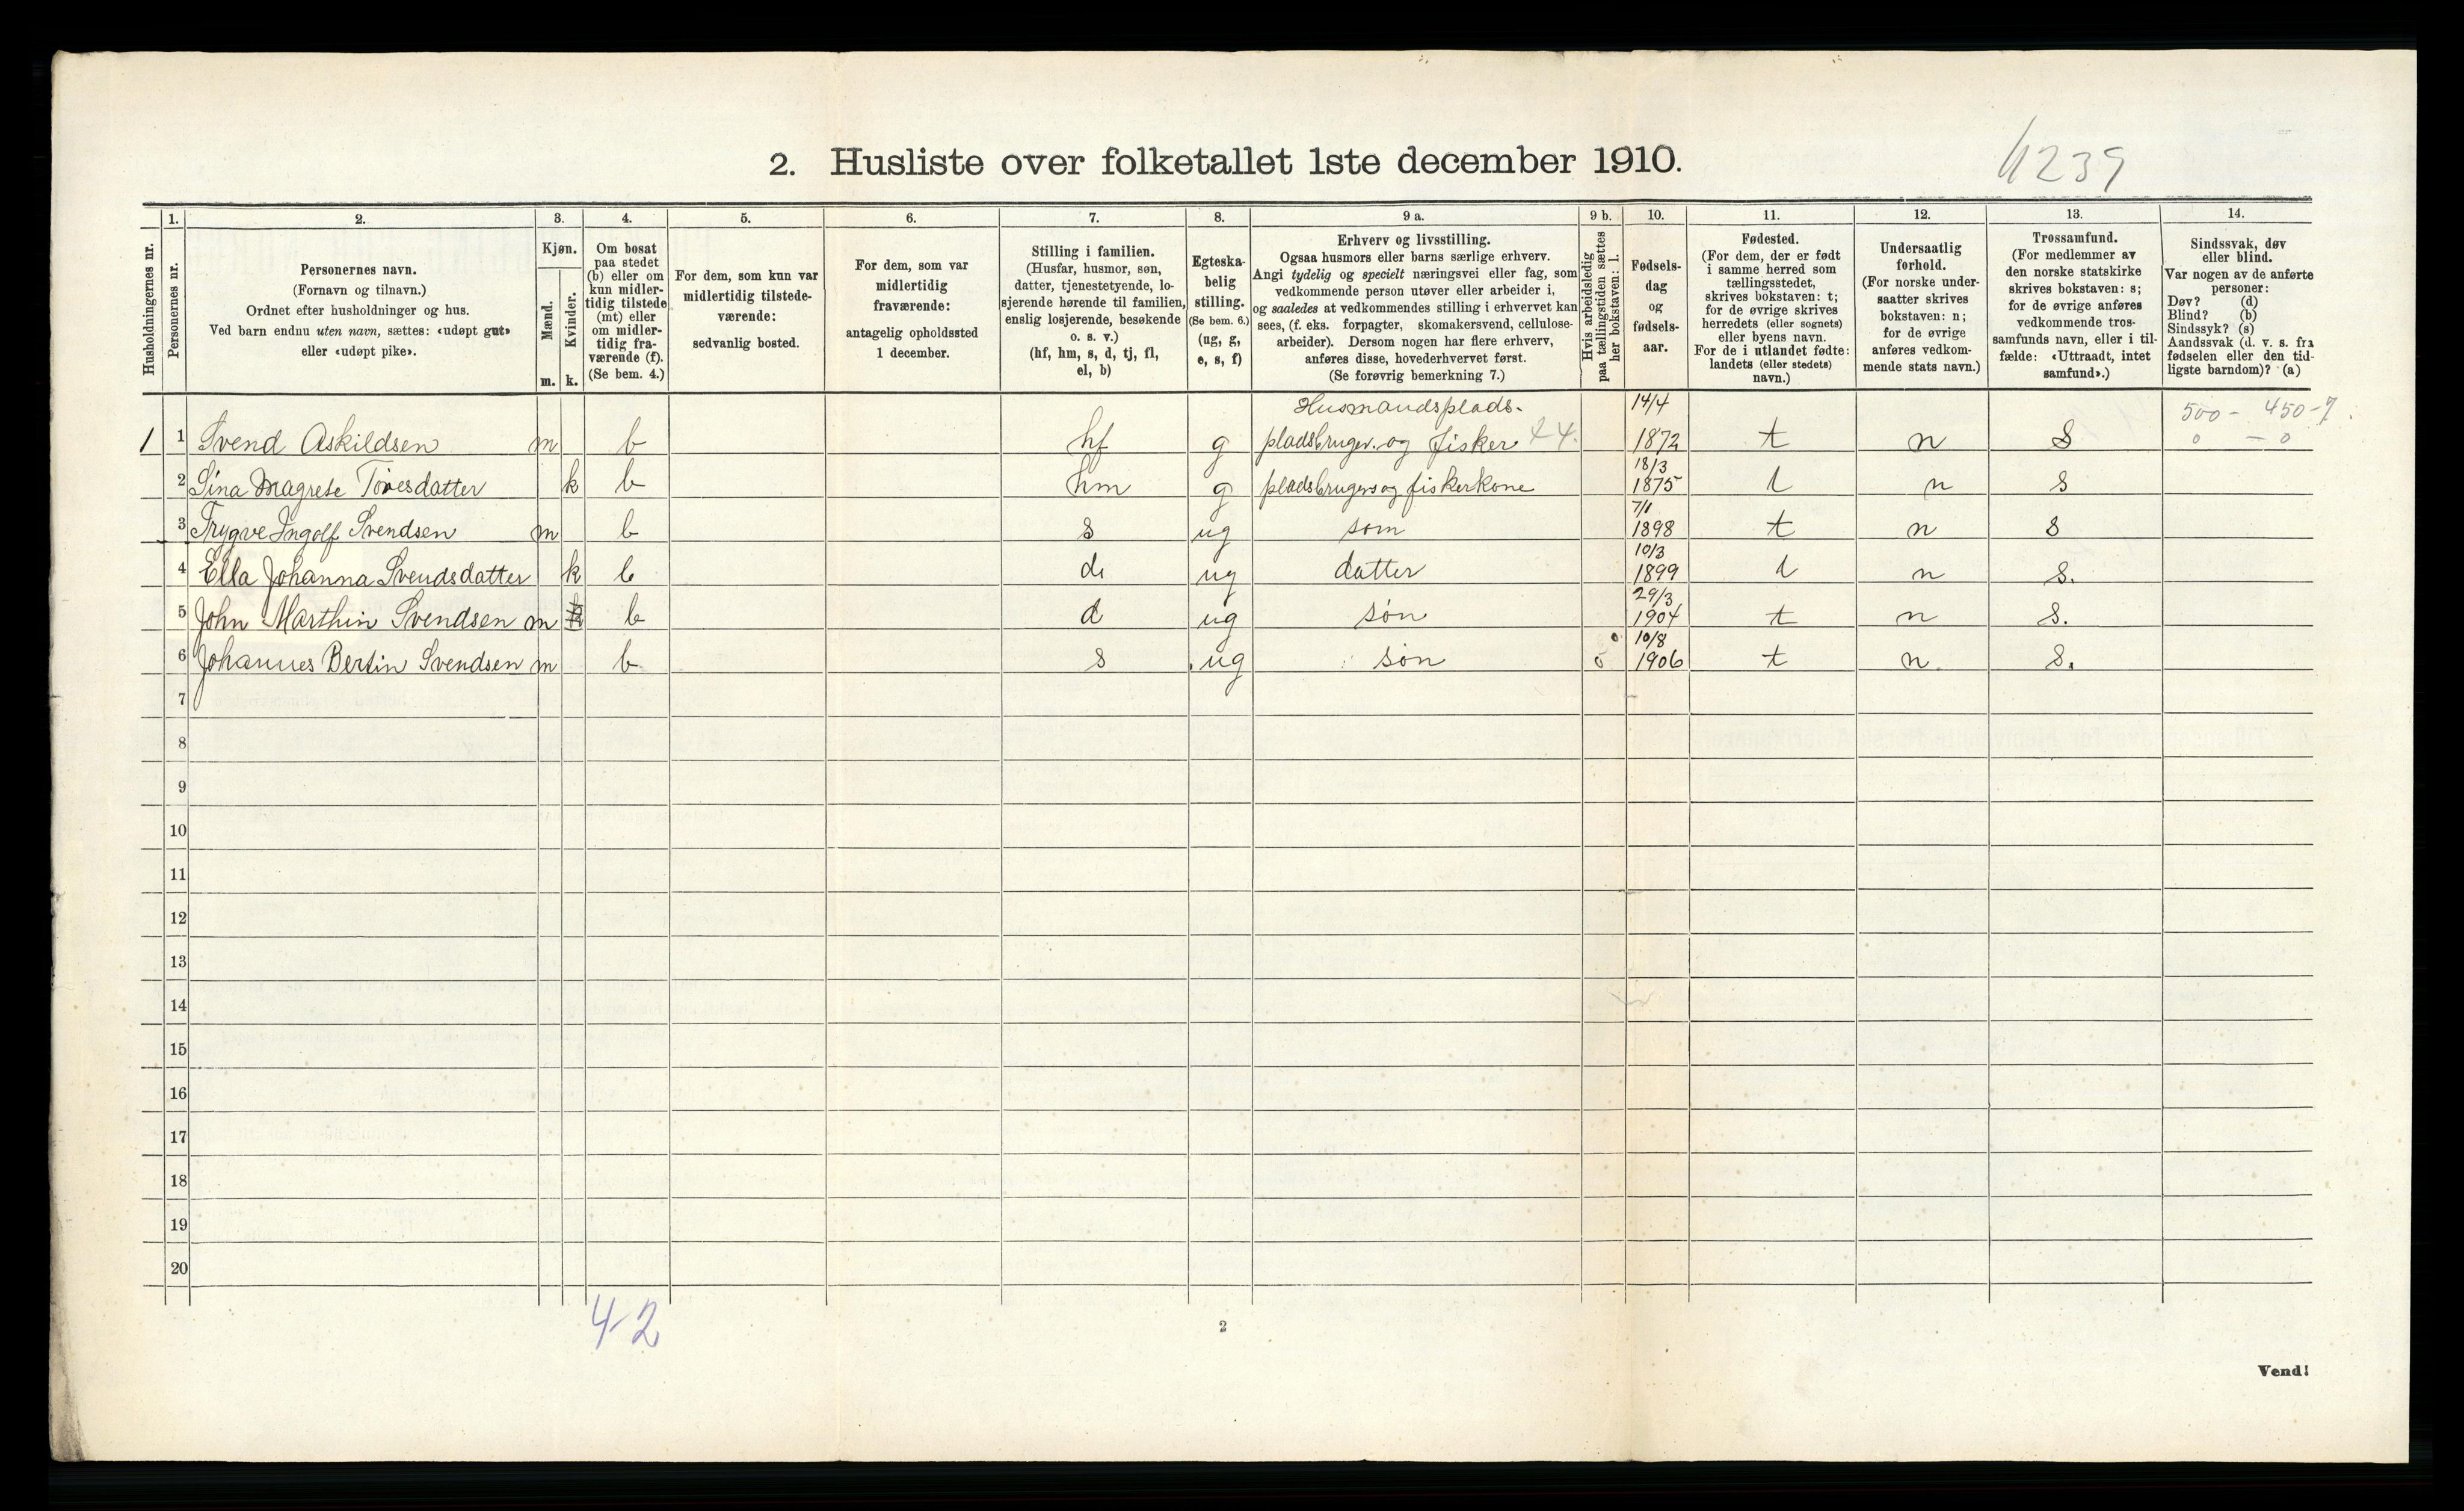 4239
2. Husliste over folketallet 1ste december 1910.
Husholdningernes nr.
1. Personernes nr.
2. Personernes navn.
(Fornavn og tilnavn.)
Ordnet efter husholdninger og hus.
Ved barn endnu uten navn, sættes: «udøpt gut»
eller «udøpt pike».
3. Kjøn.
Mænd. m.
Kvinder. k.
4. Om bosat
paa stedet
(b) eller om
kun midler-
tidig tilstede
(mt) eller
om midler-
tidig fra-
værende (f).
(Se bem. 4.)
5. For dem, som kun var
midlertidig tilstede-
værende:
sedvanlig bosted.
6. For dem, som var
midlertidig
fraværende:
antagelig opholdssted
1 december.
7. Stilling i familien.
(Husfar, husmor, søn,
datter, tjenestetyende, lo-
sjerende hørende til familien,
enslig losjerende, besøkende
o. s. v.)
(hf, hm, s, d, tj, fl,
el, b)
8. Egteska-
belig
stilling.
(Se bem. 6.)
(ug, g,
e, s, f)
9 a. Erhverv og livsstilling.
Ogsaa husmors eller barns særlige erhverv.
Angi tydelig og specielt næringsvei eller fag, som
vedkommende person utøver eller arbeider i,
og saaledes at vedkommendes stilling i erhvervet kan
sees, (f. eks. forpagter, skomakersvend, cellulose-
arbeider). Dersom nogen har flere erhverv,
anføres disse, hovederhvervet først.
(Se forøvrig bemerkning 7.)
9 b. Hvis arbeidsledig
paa tællingstiden sættes
her bokstaven: l.
10. Fødsels-
dag
og
fødsels-
aar.
11. Fødested.
(For dem, der er født
i samme herred som
tællingsstedet,
skrives bokstaven: t;
for de øvrige skrives
herredets (eller sognets)
eller byens navn.
For de i utlandet fødte:
landets (eller stedets)
navn.)
12. Undersaatlig
forhold.
(For norske under-
saatter skrives
bokstaven: n;
for de øvrige
anføres vedkom-
mende stats navn.)
13. Trossamfund.
(For medlemmer av
den norske statskirke
skrives bokstaven: s;
for de øvrige anføres
vedkommende tros-
samfunds navn, eller i til-
fælde: «Uttraadt, intet
samfund».)
14. Sindssvak, døv
eller blind.
Var nogen av de anførte
personer:
Døv? (d)
Blind? (b)
Sindssyk? (s)
Aandssvak (d. v. s. fra
fødselen eller den tid-
ligste barndom)? (a)
Husmandsplads- 14/4 500 - 450-7
1 1 Svend Askildsen m b hf g pladsbruger og fisker 1872 t n s 0 - 0
18/3
2 Sina Magrete Toresdatter k b hm g pladsbrugers og fiskerkone 1875 t n s
7/1
3 Trygve Ingolf Svendsen m b s ug søm 1898 t n s
10/3
4 Ella Johanna Svendsdatter k b d ug datter 1899 t n s.
29/3
5 John Marthin Svendsen m b d ug søn 1904 t n s.
10/8
6 Johannes Bertin Svendsen m b s ug søn 1906 t n. s.
7
8
9
10
11
12
13
14
15
16
17
18
19
20
4-2
2
Vend!